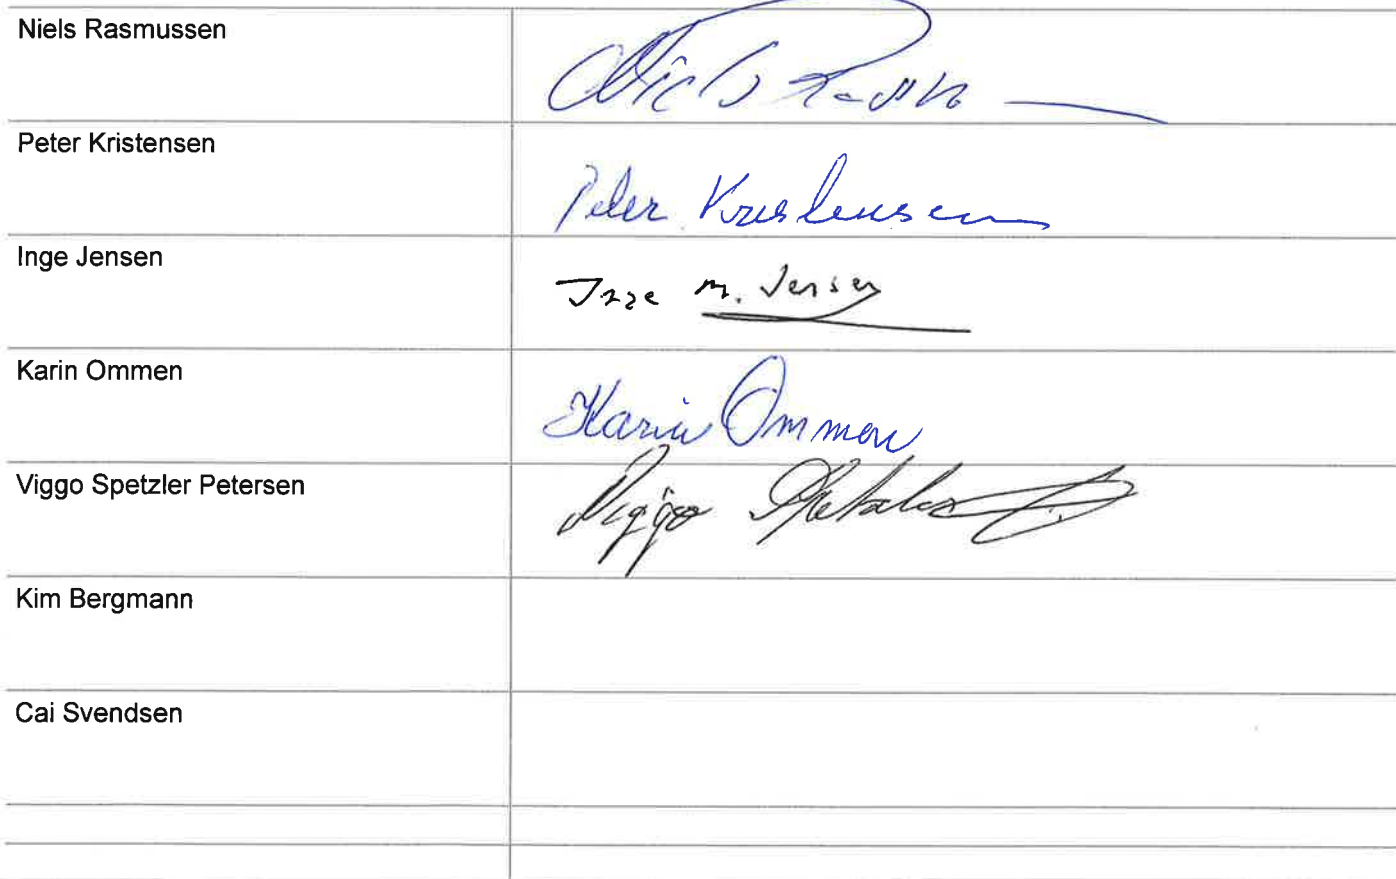 Niels Rasmussen
Peter Kristensen
Peter Kristensen
Inge Jensen
Inge M. Jensen
Karin Ommen
Karin Ommen
Viggo Spetzler Petersen
Viggo
Kim Bergmann
Cai Svendsen